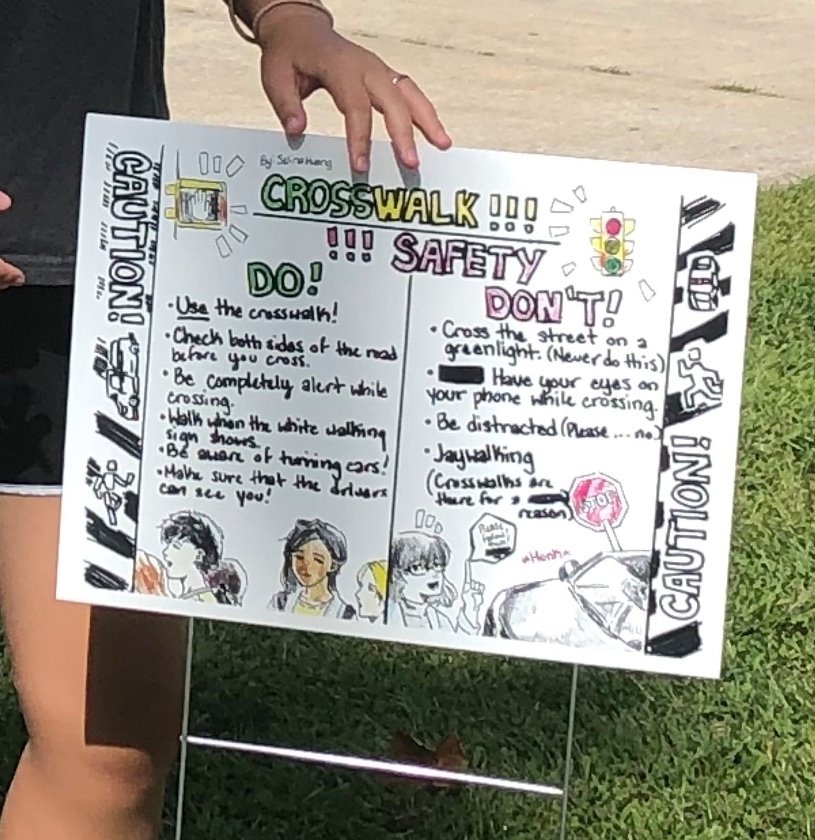 By
CROSSWALK!!!
!!! SAFETY
DO!
• Use the crosswalk!
• Check both sides of the road
before you cross.
• Be completely alert while
crossing.
• Walk when the white walking
sign shows.
• Be aware of turning cars!
• Make sure that the drivers
can see you!
DON'T!
• Cross the street on a
greenlight. (Never do this)
• Have your eyes on
your phone while crossing.
• Be distracted (Please ... no)
• Jaywalking
(Crosswalks are
there for a
reason)
STOP
Please
*Honk*
CAUTION!
CAUTION!